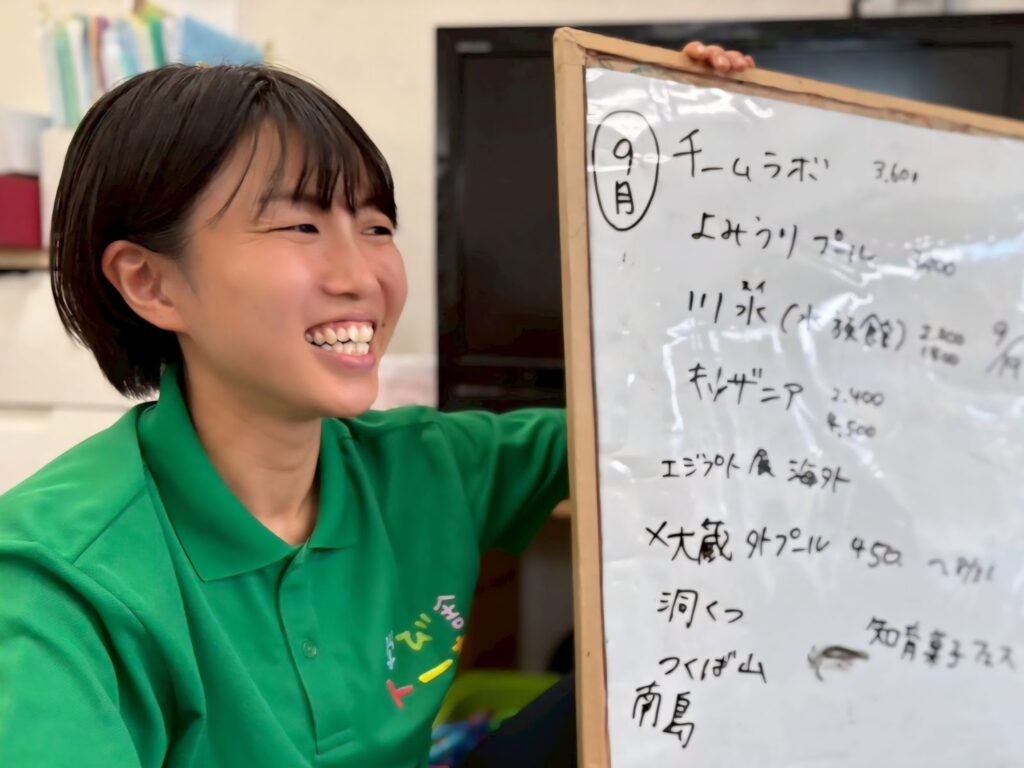 9月
チームラボ 3,601
よみうりプール
川水(水族館) 2.800
スイ
1800
9/19
キッザニア 2.400
4,500
エジプト展 海外
×大蔵 外プール 450
洞くつ
知育菓子フェス
つくば山
南島